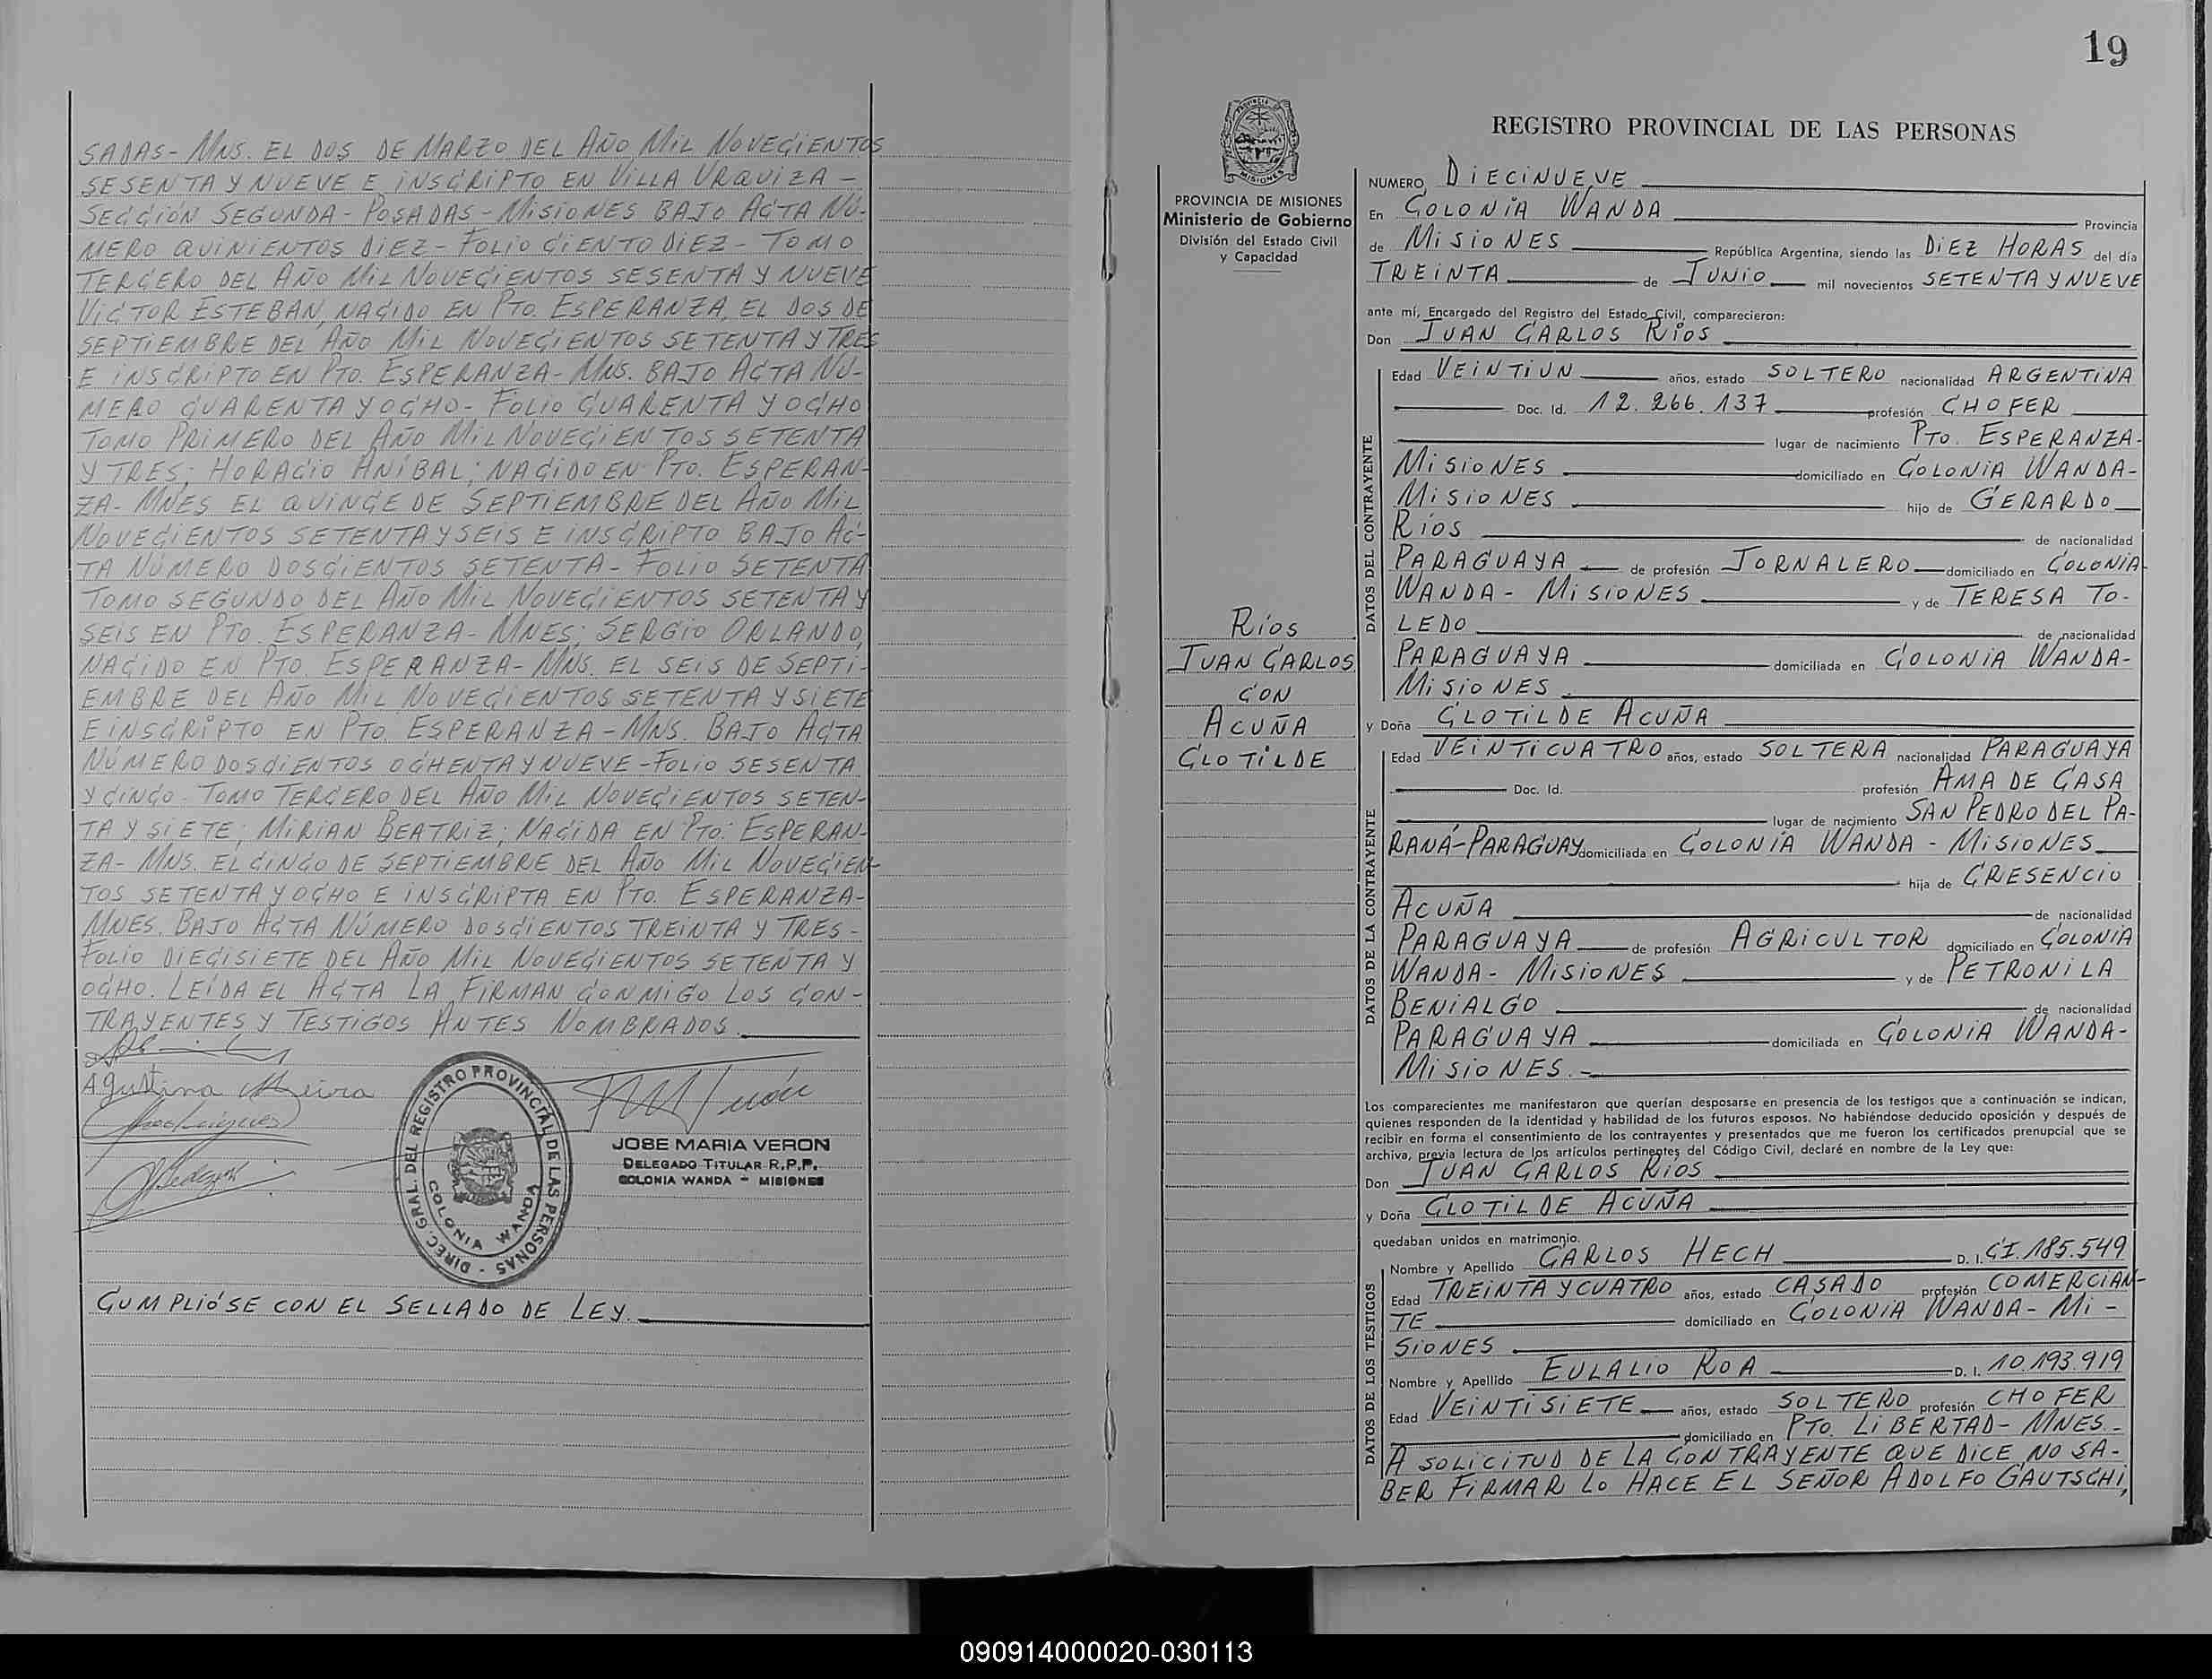 SADAS - MNS. EL DOS DE MARZO DEL AÑO MIL NOVECIENTOS
SESENTA Y NUEVE E INSCRIPTO EN VILLA URQUIZA -
SECCIÓN SEGUNDA - POSADAS - MISIONES BAJO ACTA NÚ-
MERO QUINIENTOS DIEZ - FOLIO CIENTO DIEZ - TOMO
TERCERO DEL AÑO MIL NOVECIENTOS SESENTA Y NUEVE
VICTOR ESTEBAN, NACIDO EN PTO. ESPERANZA, EL DOS DE
SEPTIEMBRE DEL AÑO MIL NOVECIENTOS SETENTA Y TRES
E INSCRIPTO EN PTO. ESPERANZA - MNS. BAJO ACTA NÚ-
MERO CUARENTA Y OCHO - FOLIO CUARENTA Y OCHO
TOMO PRIMERO DEL AÑO MIL NOVECIENTOS SETENTA
Y TRES; HORACIO ANÍBAL; NACIDO EN PTO. ESPERAN-
ZA - MNES EL QUINCE DE SEPTIEMBRE DEL AÑO MIL
NOVECIENTOS SETENTA Y SEIS E INSCRIPTO BAJO AC-
TA NÚMERO DOSCIENTOS SETENTA - FOLIO SETENTA
TOMO SEGUNDO DEL AÑO MIL NOVECIENTOS SETENTA Y
SEIS EN PTO. ESPERANZA - MNES; SERGIO ORLANDO,
NACIDO EN PTO. ESPERANZA - MNS. EL SEIS DE SEPTI-
EMBRE DEL AÑO MIL NOVECIENTOS SETENTA Y SIETE
E INSCRIPTO EN PTO. ESPERANZA - MNS. BAJO ACTA
NÚMERO DOSCIENTOS OCHENTA Y NUEVE - FOLIO SESENTA
Y CINCO - TOMO TERCERO DEL AÑO MIL NOVECIENTOS SETEN-
TA Y SIETE; MIRIAN BEATRIZ; NACIDA EN PTO. ESPERAN-
ZA - MNS. EL CINCO DE SEPTIEMBRE DEL AÑO MIL NOVECIEN-
TOS SETENTA Y OCHO E INSCRIPTA EN PTO. ESPERANZA -
MNES. BAJO ACTA NÚMERO DOSCIENTOS TREINTA Y TRES -
FOLIO DIECISIETE DEL AÑO MIL NOVECIENTOS SETENTA Y
OCHO. LEÍDA EL ACTA LA FIRMAN CONMIGO LOS CON-
TRAYENTES Y TESTIGOS ANTES NOMBRADOS.
Agustina
DIREC. GRAL. DEL REGISTRO PROVINCIAL DE LAS PERSONAS -
COLONIA WANDA
JOSE MARIA VERON
DELEGADO TITULAR R.P.P.
COLONIA WANDA - MISIONES
CUMPLIÓSE CON EL SELLADO DE LEY.
19
PROVINCIA DE MISIONES
PROVINCIA DE MISIONES
Ministerio de Gobierno
División del Estado Civil
y Capacidad
RÍOS
JUAN CARLOS
CON
ACUÑA
CLOTILDE
REGISTRO PROVINCIAL DE LAS PERSONAS
NUMERO DIECINUEVE
En COLONIA WANDA Provincia
de MISIONES República Argentina, siendo las DIEZ HORAS del día
TREINTA de JUNIO mil novecientos SETENTA Y NUEVE
ante mí, Encargado del Registro del Estado Civil, comparecieron:
Don JUAN CARLOS RÍOS
DATOS DEL CONTRAYENTE
Edad VEINTIUN años, estado SOLTERO nacionalidad ARGENTINA
Doc. Id. 12.266.137 profesión CHOFER
lugar de nacimiento PTO. ESPERANZA-
MISIONES domiciliado en COLONIA WANDA-
MISIONES hijo de GERARDO
RÍOS de nacionalidad
PARAGUAYA de profesión JORNALERO domiciliado en COLONIA
WANDA - MISIONES y de TERESA TO-
LEDO de nacionalidad
PARAGUAYA domiciliada en COLONIA WANDA-
MISIONES
y Doña CLOTILDE ACUÑA
DATOS DE LA CONTRAYENTE
Edad VEINTICUATRO años, estado SOLTERA nacionalidad PARAGUAYA
Doc. Id. profesión AMA DE CASA
lugar de nacimiento SAN PEDRO DEL PA-
RANÁ-PARAGUAY domiciliada en COLONIA WANDA - MISIONES
hija de CRESENCIO
ACUÑA de nacionalidad
PARAGUAYA de profesión AGRICULTOR domiciliado en COLONIA
WANDA - MISIONES y de PETRONILA
BENIALGO de nacionalidad
PARAGUAYA domiciliada en COLONIA WANDA-
MISIONES.-
Los comparecientes me manifestaron que querían desposarse en presencia de los testigos que a continuación se indican,
quienes responden de la identidad y habilidad de los futuros esposos. No habiéndose deducido oposición y después de
recibir en forma el consentimiento de los contrayentes y presentados que me fueron los certificados prenupcial que se
archiva, previa lectura de los artículos pertinentes del Código Civil, declaré en nombre de la Ley que:
Don JUAN CARLOS RÍOS
y Doña CLOTILDE ACUÑA
quedaban unidos en matrimonio.
DATOS DE LOS TESTIGOS
Nombre y Apellido CARLOS HECH D. I. CI. 185.549
Edad TREINTA Y CUATRO años, estado CASADO profesión COMERCIAN-
TE domiciliado en COLONIA WANDA - MI-
SIONES
Nombre y Apellido EULALIO ROA D. I. 10.193.919
Edad VEINTISIETE años, estado SOLTERO profesión CHOFER
domiciliado en PTO. LIBERTAD - MNES-
A SOLICITUD DE LA CONTRAYENTE QUE DICE NO SA-
BER FIRMAR LO HACE EL SEÑOR ADOLFO GAUTSCHI,
090914000020-030113